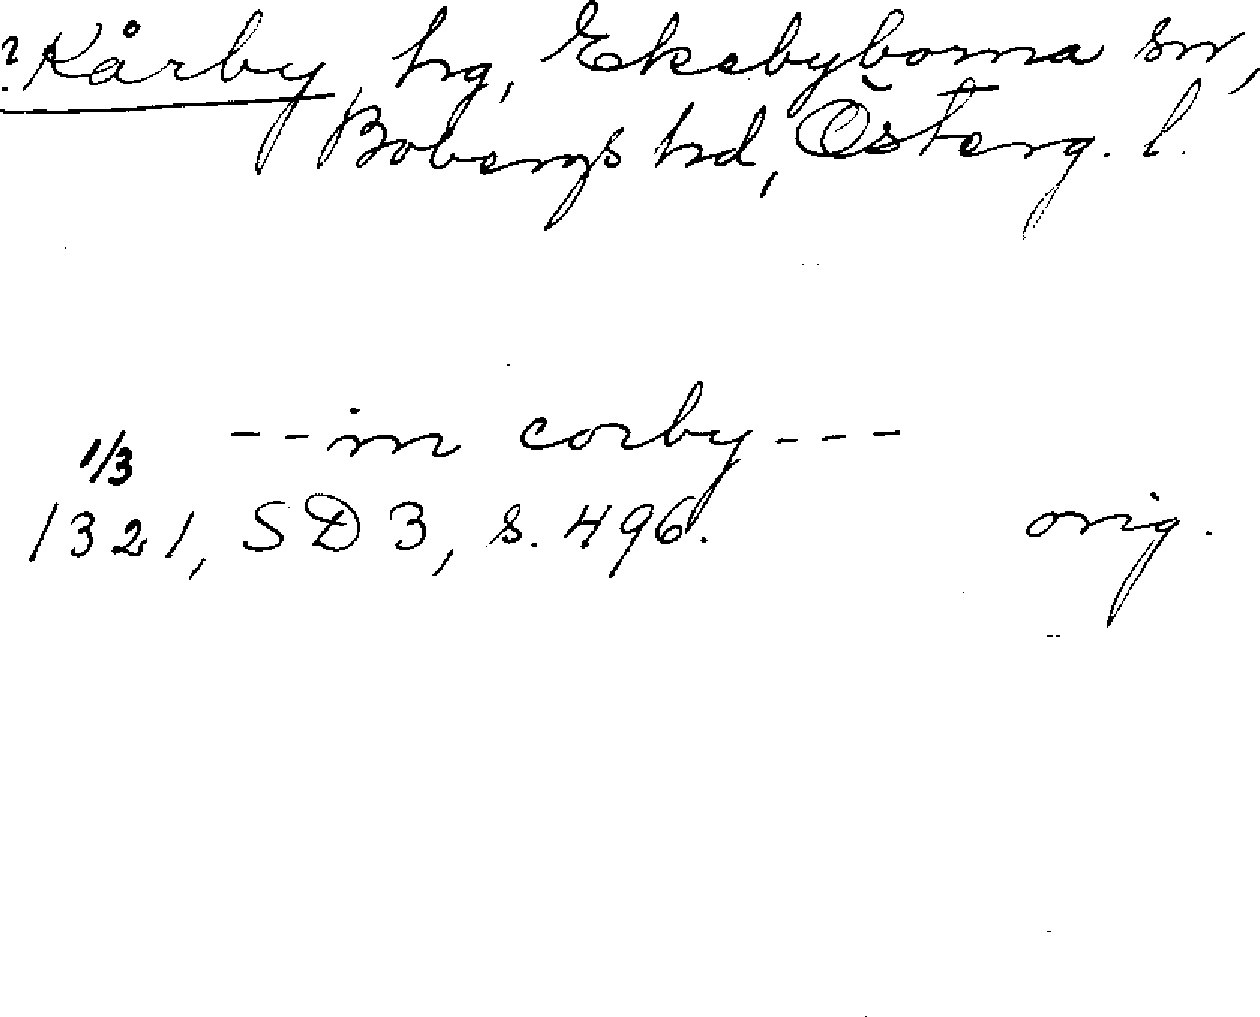 ? Kårby, hg, Ekebyborna sn,
Bobergs hd, Österg. l.
- - in corby - - -
1/3
1321, SD 3, s. 496. orig.